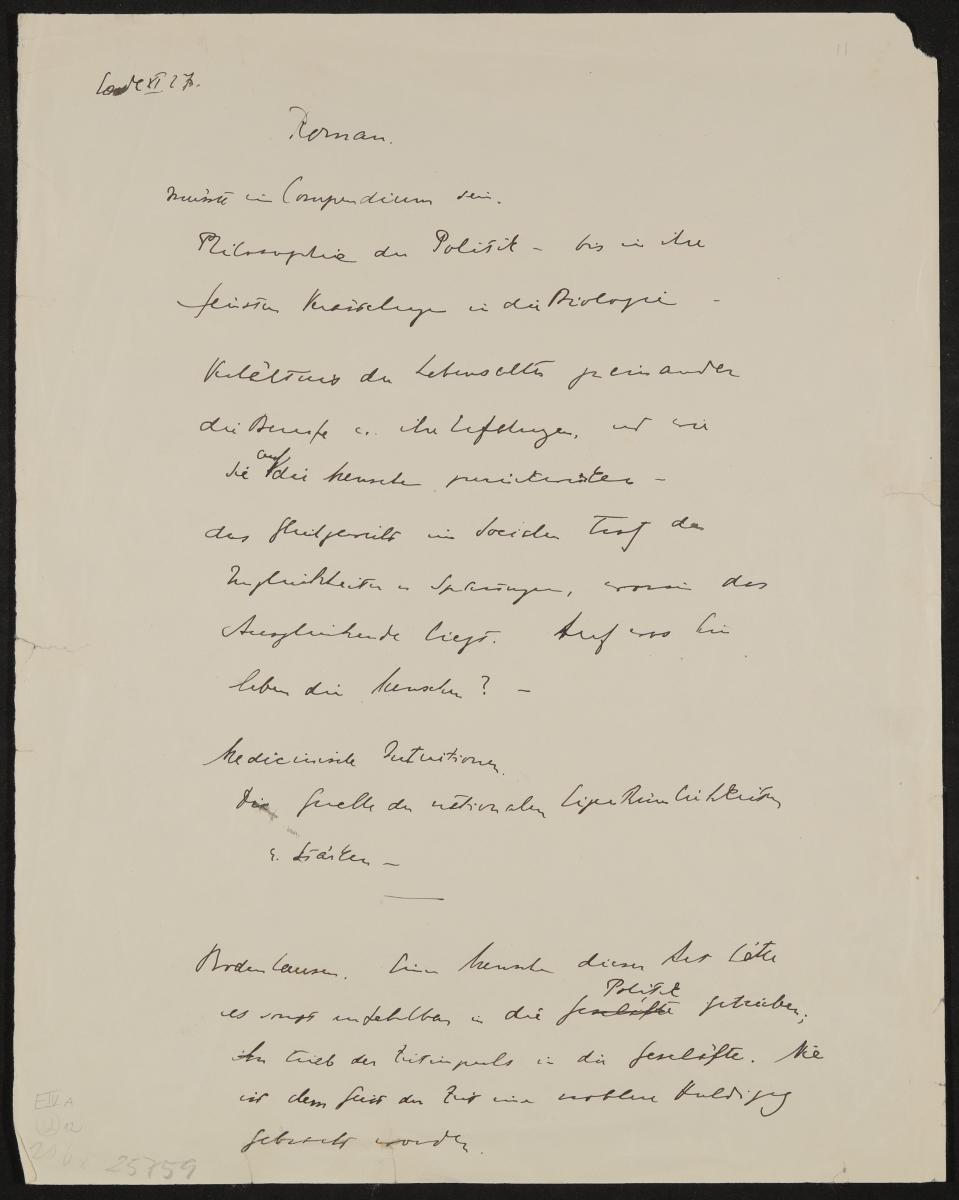 11
XI 27.
Roman.
müsste ein Compendium sein.
Philosophie der Politik – bis in ihre
feinsten Verästelungen in die Biologie –
Verhältnis der Lebensalter zueinander
die Berufe u. ihre und wie
sie auf die Menschen zurückwirken –
das Gleichgewicht im Socialen trotz der
Ungleichheiten u Spannungen, worin das
Ausgleichende liegt. Auf was hin
leben die Menschen? –
Medicinische Intuitionen.
Die Quelle der nationalen Eigenthümlichkeiten
u. Stärken –
Bodenhausen. Einen Menschen dieser Art hätte
es sonst unfehlbar in die Geschäfte Politik getrieben;
ihn trieb der Zeitimpuls in die Geschäfte. Nie
ist dem Geist der Zeit eine noblere Huldigung
gebracht worden.
E IV A
25759